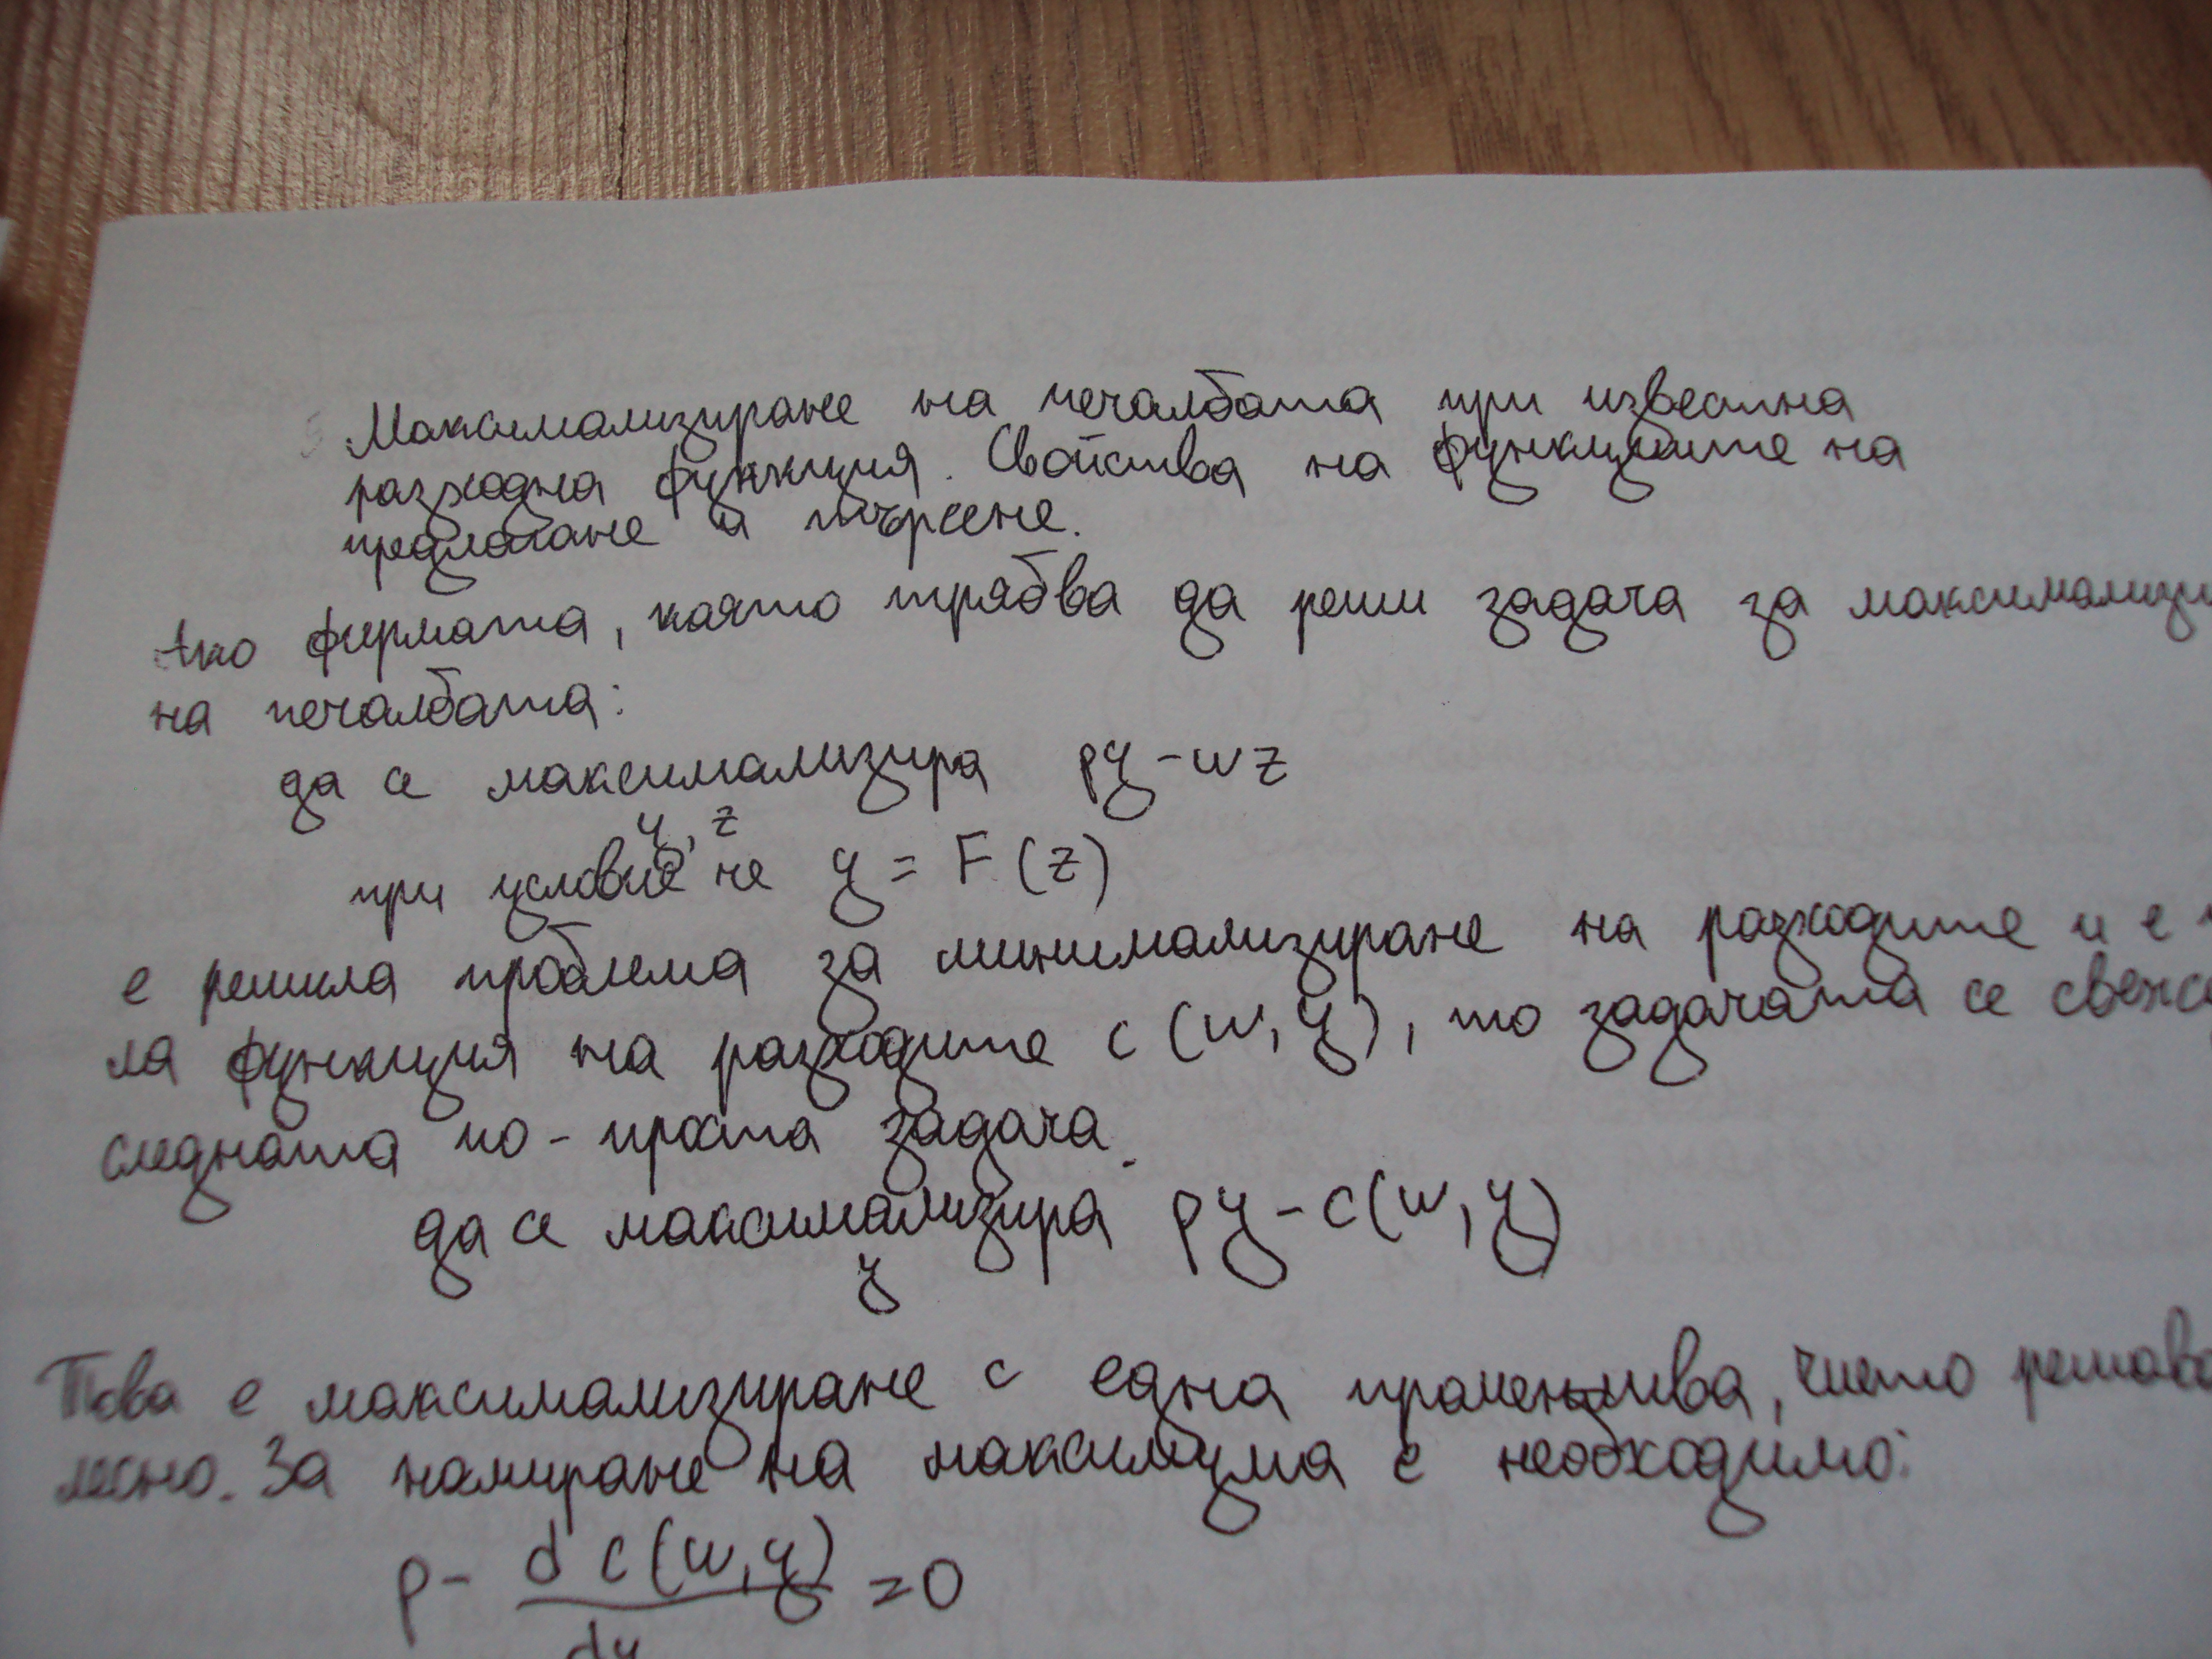 Максимализиране на печалбата при известна
разходна функция. Свойства на функциите на
предлагане и търсене.
Ако фирмата, която трябва да реши задача за максимализи
на печалбата:
да се максимализира py - wz
y, z
при условие че y = F(z)
е решила проблема за минимализиране на разходите и е
ла функция на разходите c (w, y), то задачата се свежд
следната по-проста задача.
да се максимализира py - c(w, y)
y
Това е максимализиране с една променлива, чието решава
лесно. За намиране на максимума е необходимо:
p - d c(w, y) = 0
dy